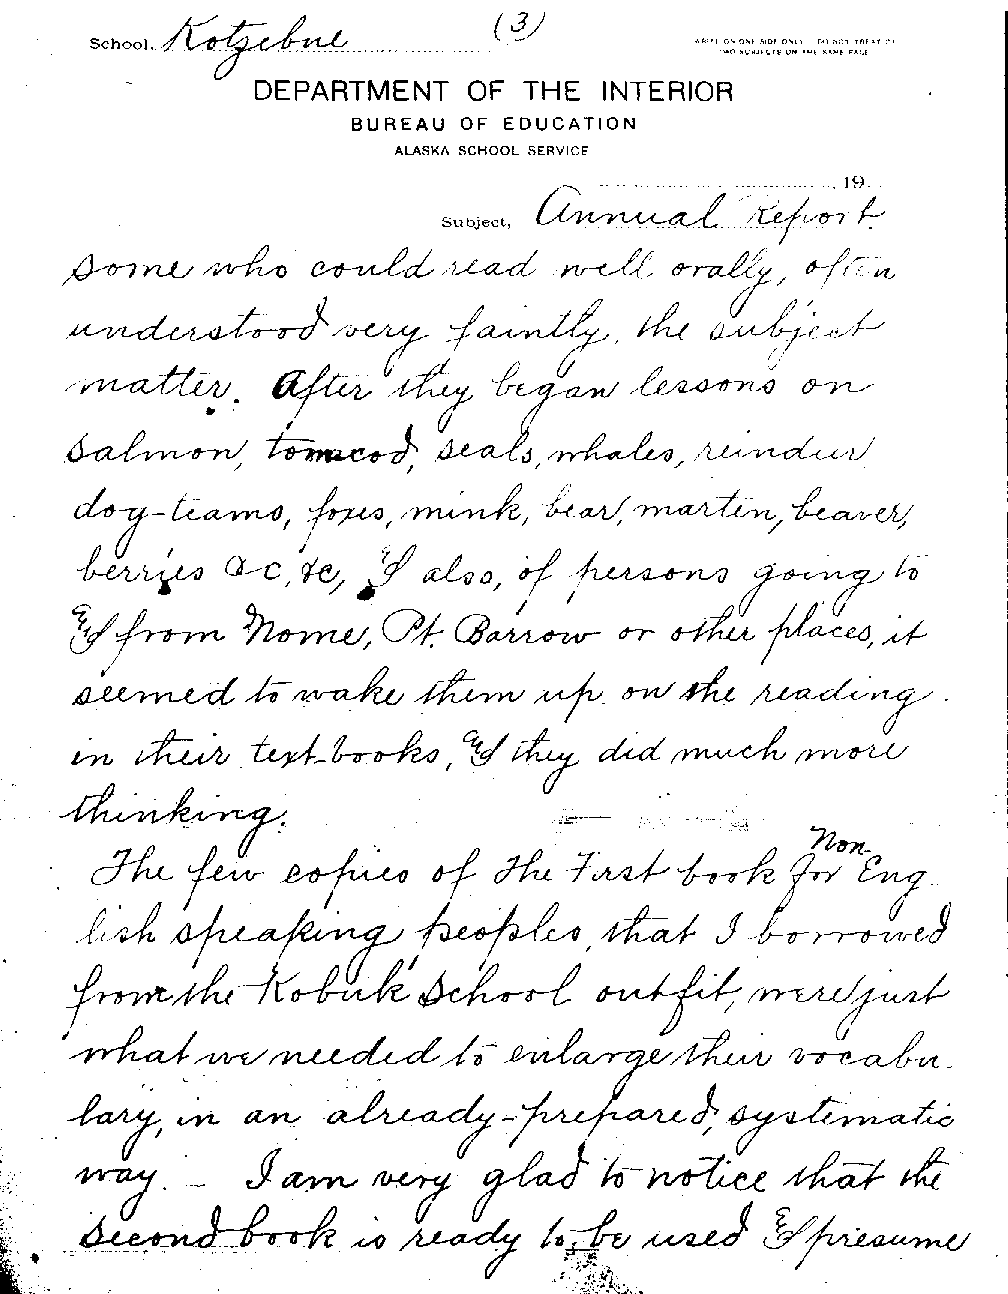 (3)
School, Kotzebue
WRITE ON ONE SIDE ONLY. DO NOT TREAT OF
TWO SUBJECTS ON THE SAME PAGE
DEPARTMENT OF THE INTERIOR
BUREAU OF EDUCATION
ALASKA SCHOOL SERVICE
, 19
Subject, Annual Report.
some who could read well orally, often
understood very faintly, the subject
matter. After they began lessons on
salmon, tomcod, seals, whales, reindeer
dog-teams, foxes, mink, bear, marten, beaver,
berries &c, &c, & also, of persons going to
& from Nome, Pt. Barrow or other places, it
seemed to wake them up on the reading
in their text-books, & they did much more
thinking.
The few copies of the First book for Non-Eng
lish speaking peoples, that I borrowed
from the Kobuk School outfit, were just
what we needed to enlarge their vocabu-
lary, in an already-prepared, systematic
way. - I am very glad to notice that the
second book is ready to be used & presume